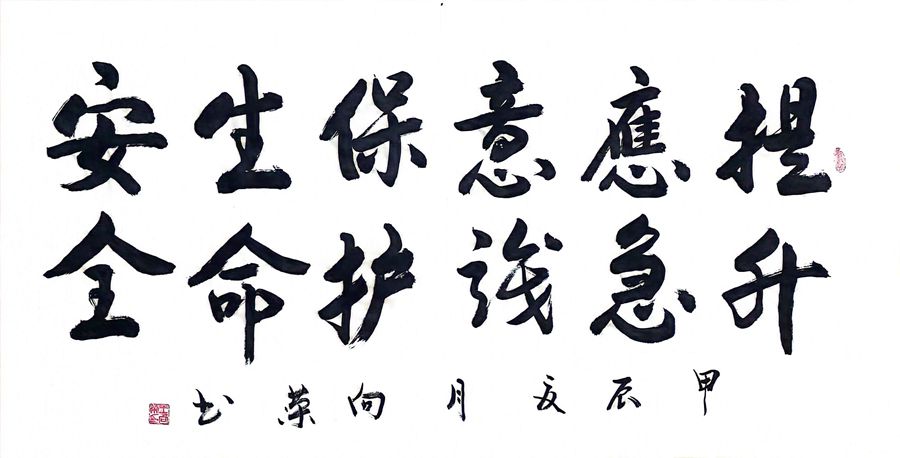 提升
應急
意識
保护
生命
安全
甲辰夏月向荣书